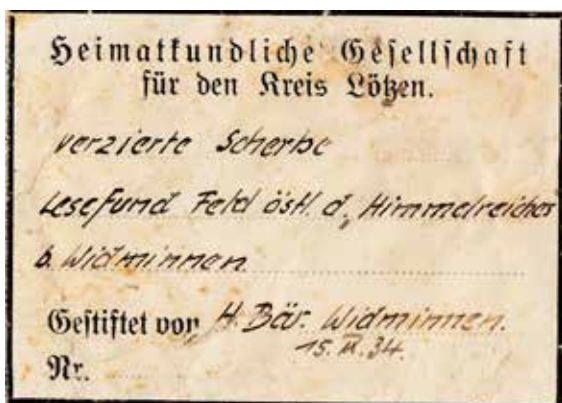 Heimatkundliche Gesellschaft
für den Kreis Lötzen.
verzierte Scherbe
Lesefund Feld östl. d. „Himmelreiches
b. Widminnen
Gestiftet von H. Bär. Widminnen.
15. 34.
Nr.